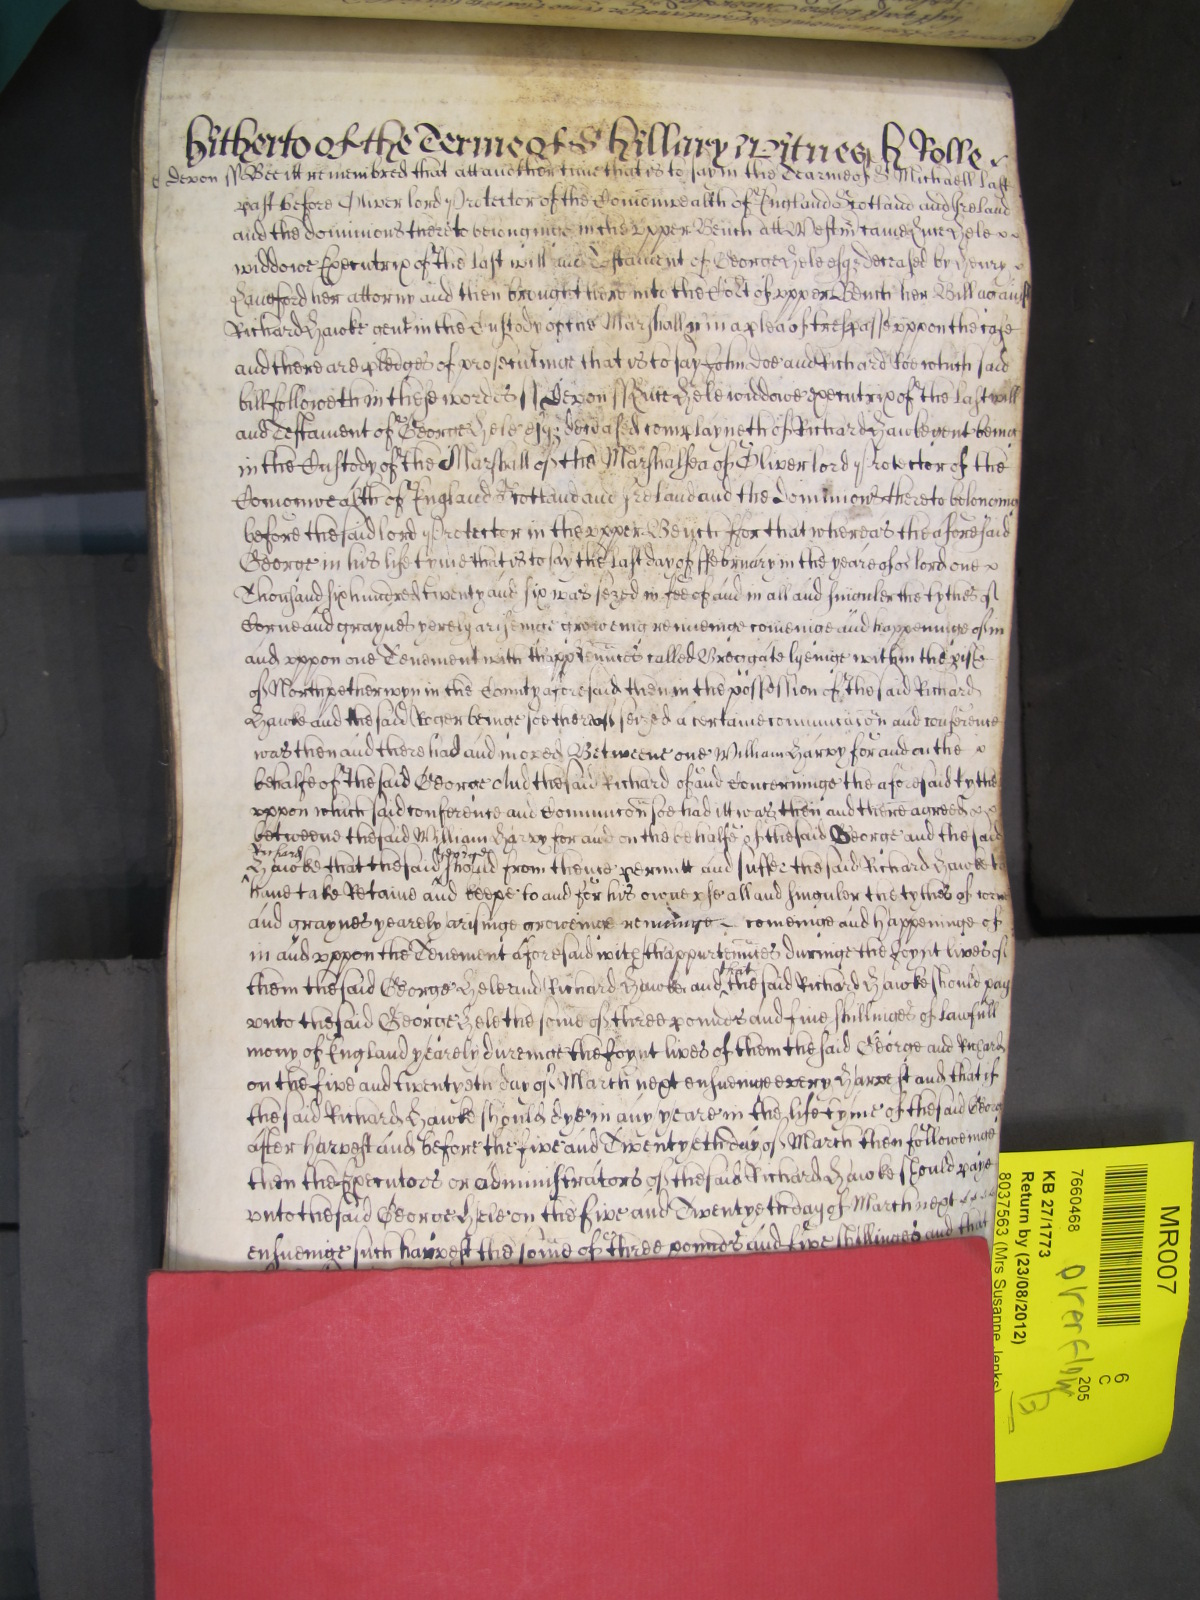 hitherto of the Terme of St hillary Witnes H Rolle
Devon ss Bee itt remembred that att another time that is to say in the Tearme of St Michaell last
past before Oliver lord Protector of the Comonwealth of England Scotland and Ireland
and the dominions thereto belonginge in the vpper Bench att Westm came Hele
widdowe Executrix of the last will and Testament of George Hele esqr deceased by Henry
Langford her attorny and then brought here into the Co't of vpper Bench her Bill against
Richard Hawke gent in the Custody of the Marshall &c in a plea of trespasse vppon the case
and there are pledges of prosecutinge that is to say John Doe and Richard Roe which said
bill followeth in these wordes ss Devon ss Hele widdowe executrix of the last will
and Testament of George Hele esqr deceased complayneth of Richard Hawke gent being
in the Custody of the Marshall of the Marshalsea of Oliver lord Protector of the
Comonwealth of England Scotland and Ireland and the dominions thereto belonging
before the said lord Protector in the vpper Bench ffor that whereas the aforesaid
George in his life tyme that is to say the last day of ffebruary in the yeare of or lord one
Thousand six hundred twenty and six was seized in fee of and in all and singuler the tythes of
Corne and graynes yerely ariseinge groweinge renueinge comeinge and happeninge of in
and vppon one Tenement with thapptennces called lyeinge within the pish
of Northpetherwyn in the County aforesaid then in the possession of the said Richard
Hawke and the said Roger beinge soe thereof seized a certaine comunicacon and conference
was then and there had and moved Betweene one William Harry for and on the
behalfe of the said George And the said Richard of and Concerninge the aforesaid tythes
vppon which said conference and Communicon soe had itt was then and there agreed
betweene the said William Harry for and on the behalfe of the said George and the said
Richard
Hawke that the said George should from thence permitt and suffer the said Richard Hawke to
have take Retaine and keepe to and for his owne vse all and singuler the tythes of corne
and graynes yearely arisinge groweinge renuinge comeinge and happeninge of
in and vppon the Tenement aforesaid with thappurtennces duringe the Joynt lives of
them the said George Hele and Richard Hawke and that the said Richard Hawke should pay
vnto the said George Hele the some of three poundes and five shillinges of lawfull
mony of England yearely dureinge the Joynt lives of them the said George and Richard
on the five and twentyeth day of March next ensueinge every Harvest and that if
the said Richard Hawke should dye in any yeare in the life tyme of the said George
after harvest and before the five and Twentyeth day of March then followeinge
then the Executors or administrators of the said Richard Hawke should paye
vnto the said George Hele on the five and Twentyeth day of March next
ensueinge such harvest the some of three poundes and five shillinges and that
MR007
6
C
205
7660468
overflow
KB 27/1773
Return by (23/08/2012)
8037563 (Mrs Susanne Jenks)